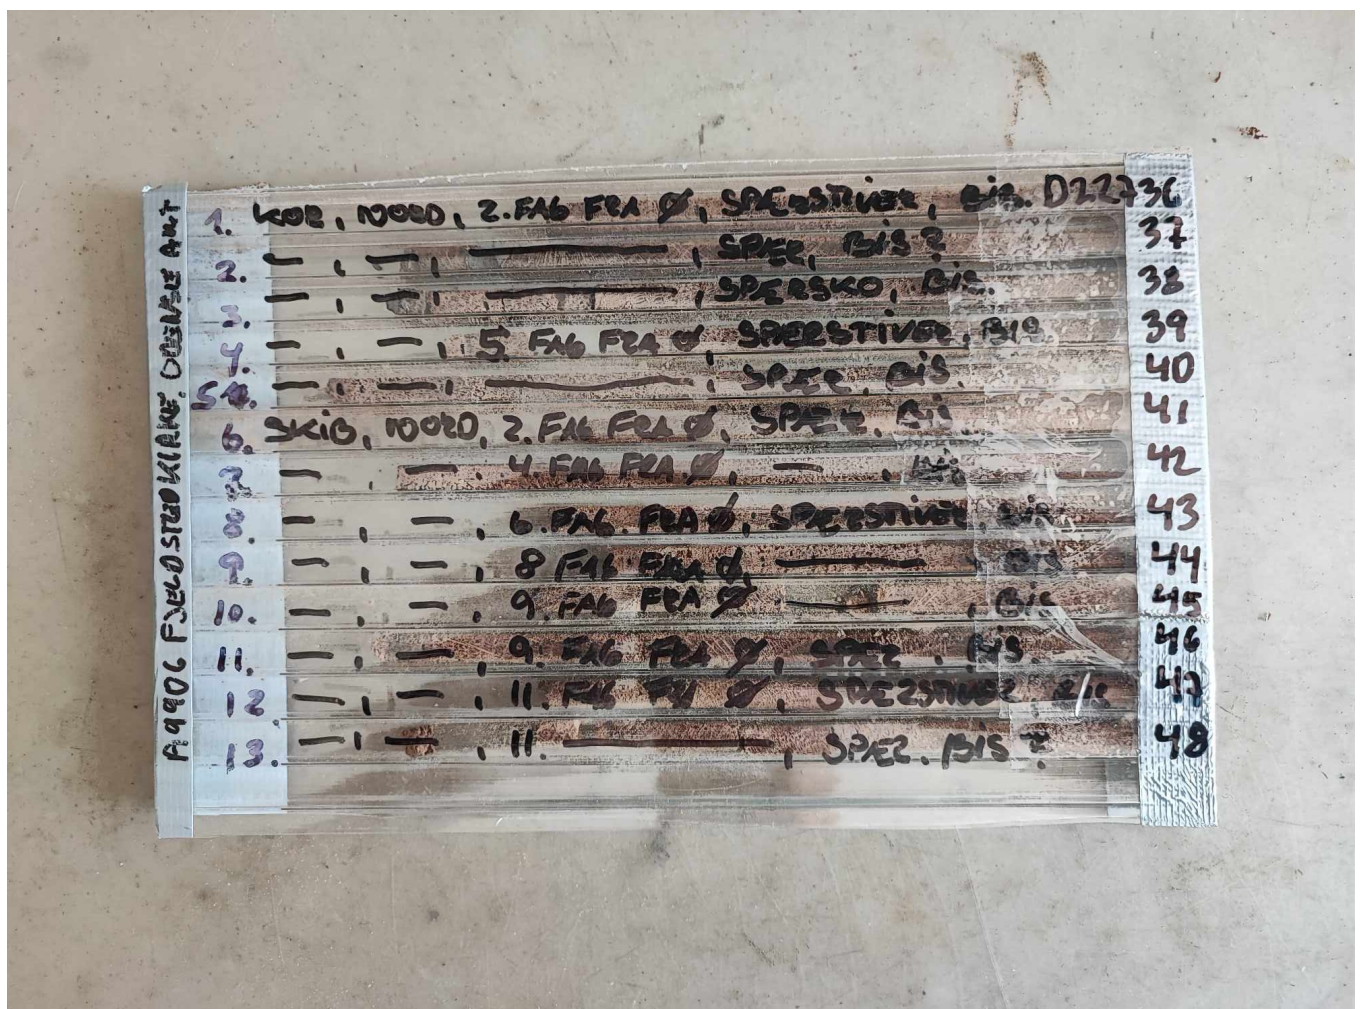 A9906 FJELDSTED KIRKE. ODENSE AMT
1. KOR, NORD, 2. FAG FRA Ø, SPÆRSTIVER, BIS. D22736
2. — , — , —— , SPÆR, BIS? 37
3. — , — —— , SPÆRSKO, BIS. 38
4. — , — , 5 FAG FRA Ø SPÆRSTIVER, BIS. 39
5. — , — , —— , SPÆR, BIS. 40
6. SKIB, NORD, 2. FAG FRA Ø, SPÆR, BIS 41
7. — , — . 4. FAG FRA Ø, — , 42
8. — , — , 6. FAG. FRA Ø, SPÆRSTIVER, BIS 43
9. — , — , 8 FAG FRA Ø, —— BIS 44
10. — , — , 9. FAG FRA Ø —— , BIS 45
11. — , — , 9. FAG FRA Ø, SPÆR . BIS. 46
12. — , — , 11. FAG FRA Ø SPÆRSTIVER BIS 47
13. — , — , 11. —— , SPÆR. BIS? 48